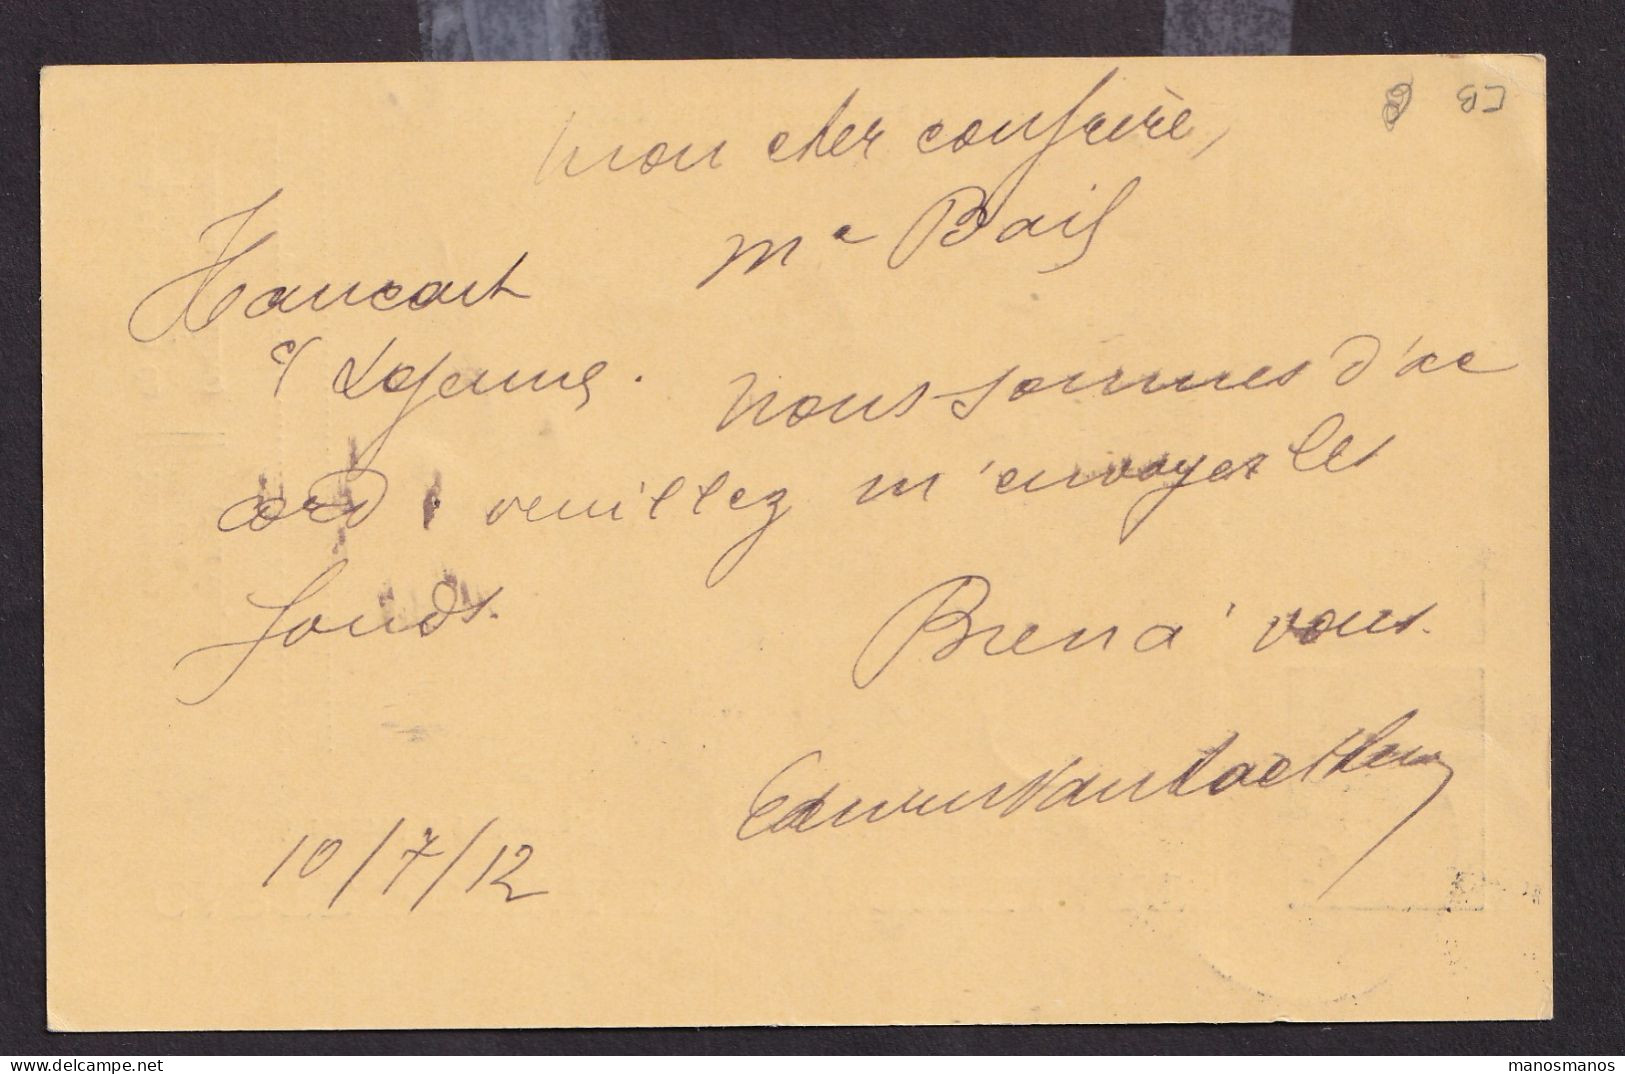 CB
Mon cher confrère,
Me Bail
Hancart
c/ Lejeune.
Nous sommes d'ac
cord, veuillez m'envoyer les
fonds.
Bien à vous.
10/7/12
manosmanos